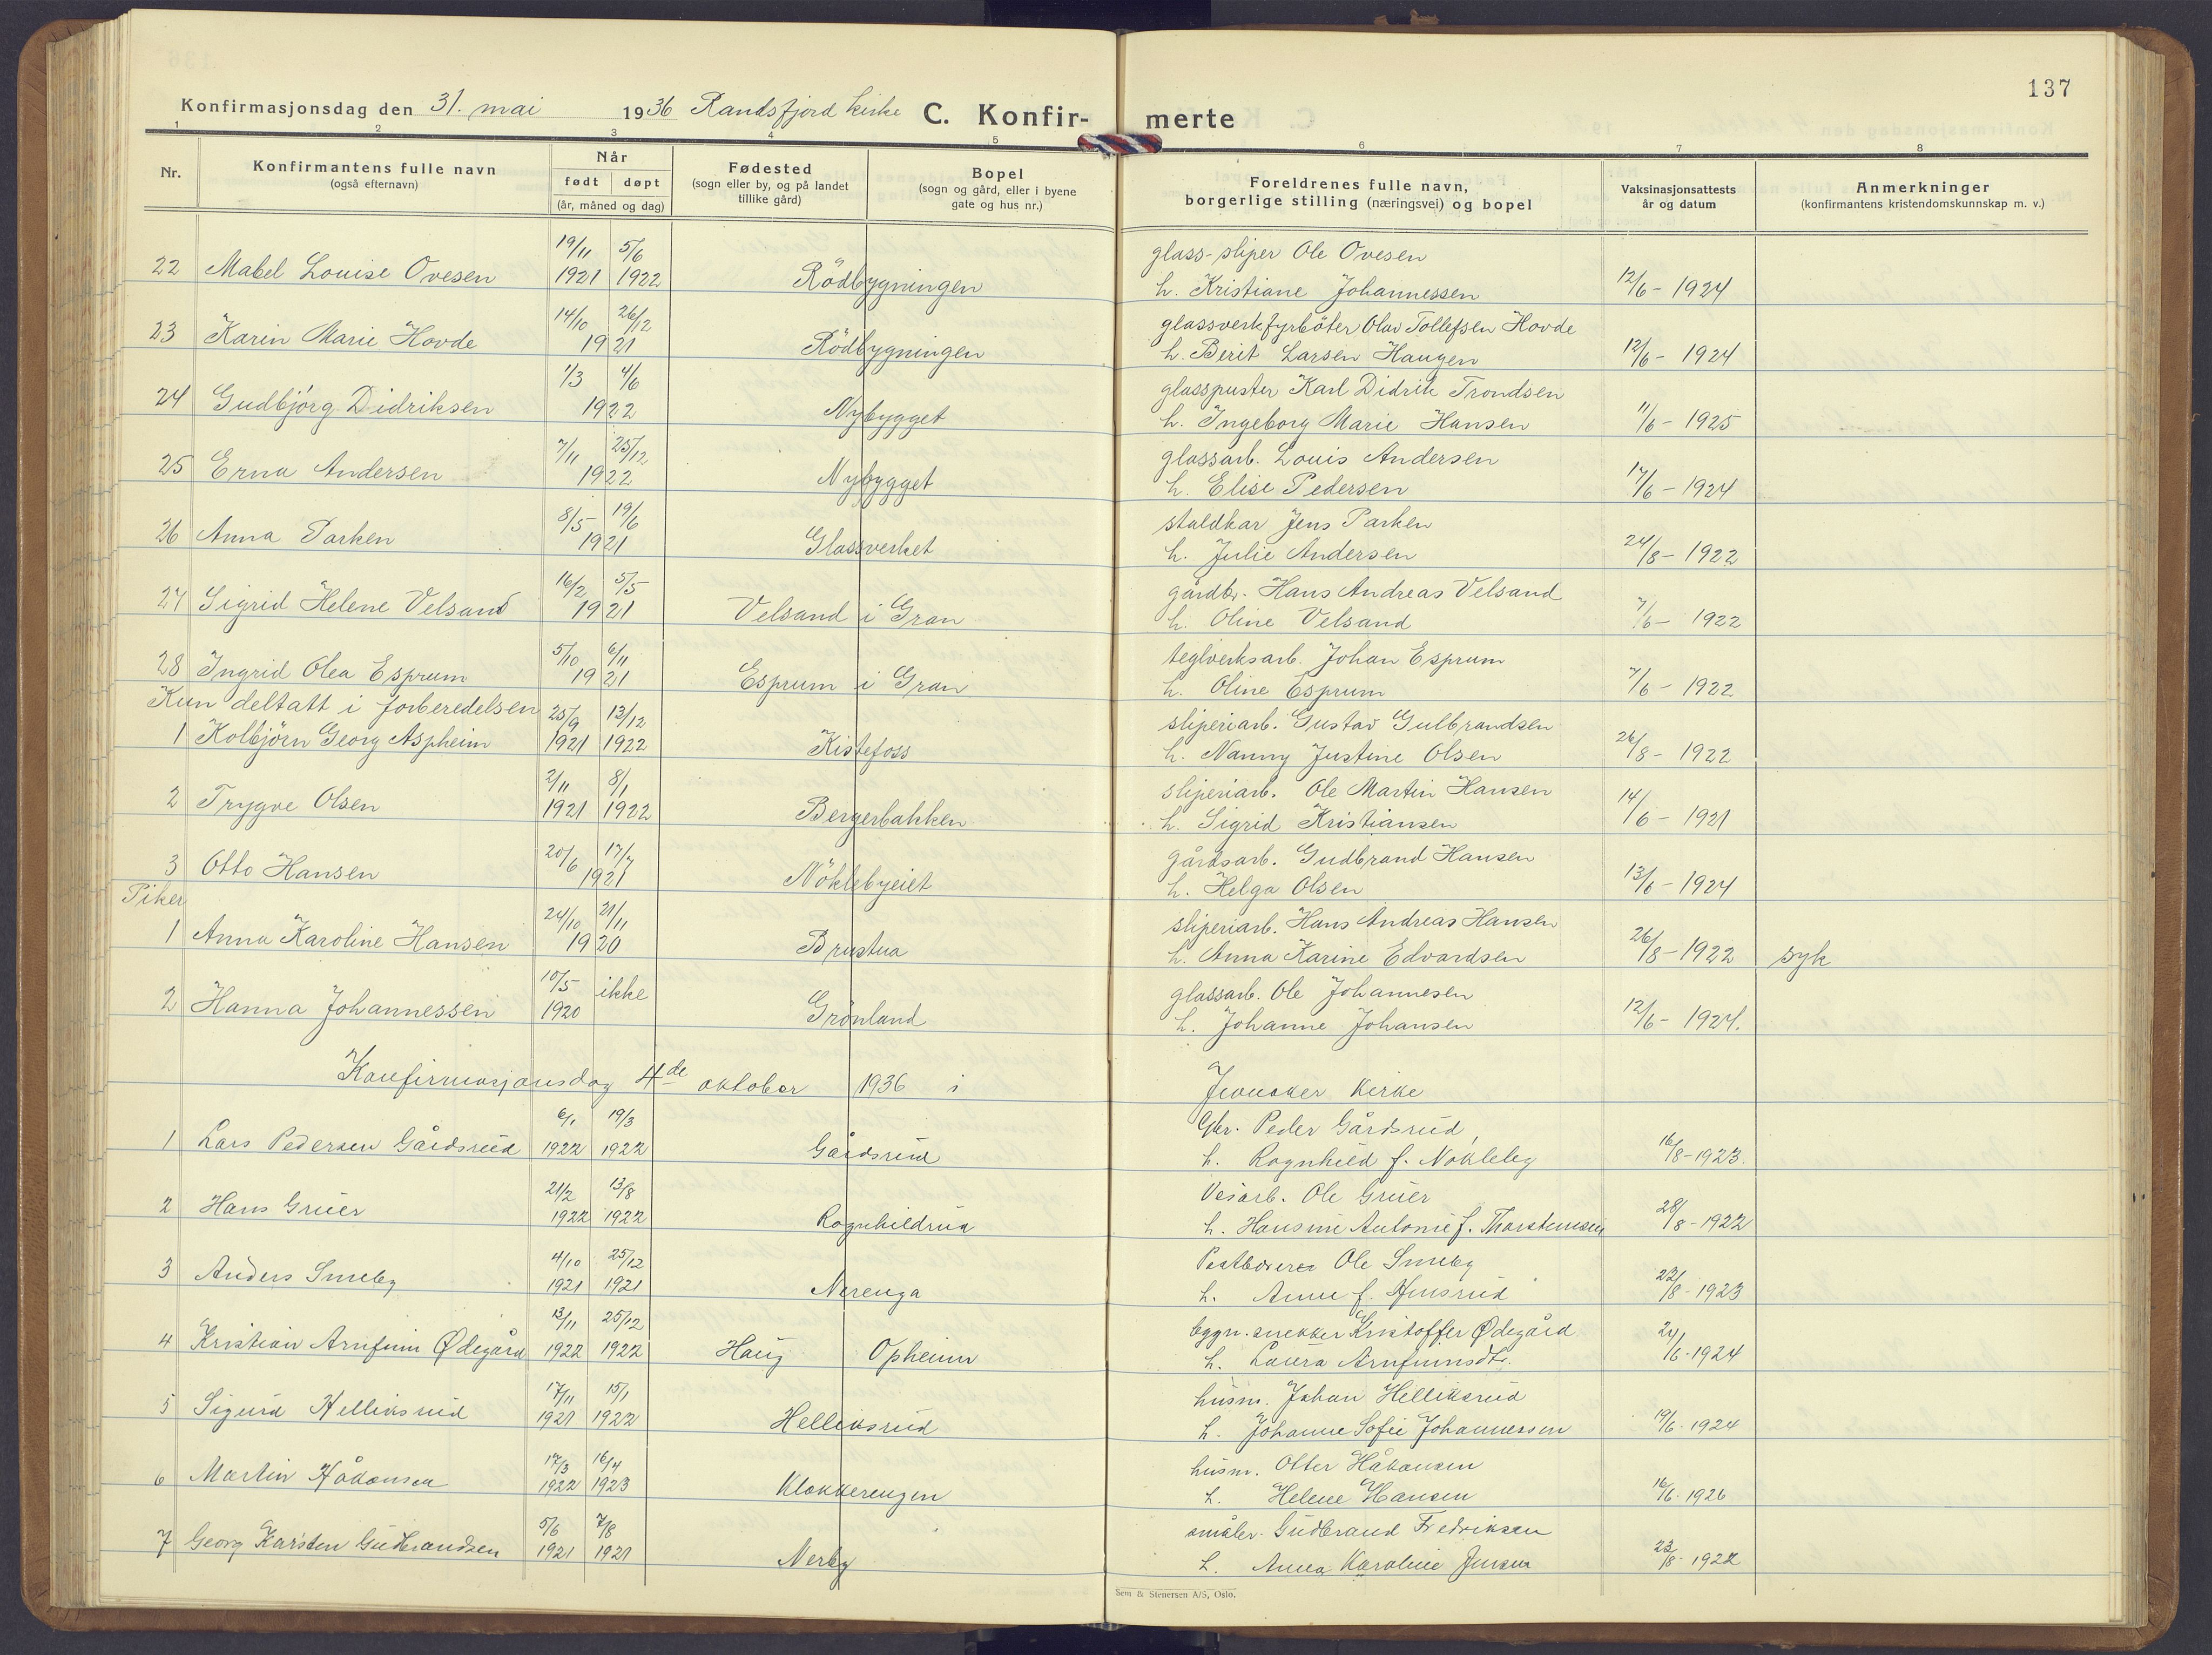 137
Konfirmasjonsdag den 31. mai 1936 Randsfjord kirke C. Konfir- merte
1 2 3 4 5 6 7 8
Nr. Konfirmantens fulle navn (også efternavn) Når født døpt (år, måned og dag) Fødested (sogn eller by, og på landet tillike gård) Bopel (sogn og gård, eller i byene gate og hus nr.) Foreldrenes fulle navn, borgerlige stilling (næringsvei) og bopel Vaksinasjonsattests år og datum Anmerkninger (konfirmantens kristendomskunnskap m. v.)
19/11 5/6 glass-sliper Ole Ovesen
22 Mabel Louise Ovesen 1921 1922 Rödbygningen h. Kristiane Johannessen 12/6 - 1924
14/10 26/12 glassverkfyrböter Olav Tollefsen Hovde
23 Karin Marie Hovde 1921 Rödbygningen h. Berit Larsen Haugen 12/6 - 1924
1/3 4/6 glasspuster Karl Didrik Trondsen
24 Gudbjörg Didriksen 1922 Nybygget h. Ingeborg Marie Hansen 11/6 - 1925
7/11 25/12 glassarb. Louis Andersen
25 Erna Andersen 1922 Nybygget h. Elise Pedersen 17/6 - 1924
8/5 19/6 staldkar Jens Parken
26 Anna Parken 1921 Glassverket h. Julie Andersen 24/8 - 1922
16/2 5/5 gårdbr. Hans Andreas Velsand
27 Sigrid Helene Velsand 1921 Velsand i Gran h. Oline Velsand 7/6 - 1922
5/10 6/11 teglverksarb. Johan Esprum
28 Ingrid Olea Esprum 1921 Esprum i Gran h. Oline Esprum 7/6 - 1922
Kun deltatt i forberedelsen 25/9 13/12 sliperiarb. Gustav Gulbrandsen
1 Kolbjörn Georg Aspheim 1921 1922 Kistefoss h. Nanny Justine Olsen 26/8 - 1922
2/11 8/1 sliperiarb. Ole Martin Hansen
2 Trygve Olsen 1921 1922 Bergerbakken h. Sigrid Kristiansen 14/6 - 1921
20/6 17/7 gårdsarb. Gudbrand Hansen
3 Otto Hansen 1921 Nöklebyeiet h. Helga Olsen 13/6 - 1924
Piker
24/10 21/11 sliperiarb. Hans Andreas Hansen
1 Anna Karoline Hansen 1920 Brustua h. Anna Karine Edvardsen 26/8 - 1922 syk
10/5 ikke glassarb. Ole Johannesen
2 Hanna Johannessen 1920 Grönland h. Johanne Johansen 12/6 - 1924.
Konfirmasjonsdag 4de oktober 1936 i Jevnaker Kirke
6/1 19/3 Gbr. Peder Gårdsrud,
1 Lars Pedersen Gårdsrud 1922 1922 Gårdsrud h. Ragnhild f. Nökleby 16/8 - 1923.
21/2 13/8 Veiarb. Ole Gruer
2 Hans Gruer 1922 1922 Ragnhildrud h. Hansine Antonie f. Thorstensen 28/8 - 1922
4/10 25/12 Ole Smeby
3 Anders Smeby 1921 1921 Nerenga h. Anne f. 22/8 - 1923
13/11 25/12 bygn. snekker Kristoffer Ødegård
4 Kristian Arnfinn Ødegård 1922 1922 Haug Opheim h. Laura Arnfinnsdtr. 24/6 - 1924
17/11 15/1 husm. Johan Helliksrud
5 Sigurd Helliksrud 1921 1922 Helliksrud h. Johanne Sofie Johannessen 19/6 - 1924
17/3 16/4 husm. Otter Håkonsen
6 Martin Håkonsen 1922 1923 Klokkerengen h. Helene Hansen 16/6 - 1926
5/6 7/8 småbr. Gudbrand Fredriksen
7 Georg Karsten Gudbrandsen 1921 1921 Nerby h. Anna Karoline Jensen 23/8 - 1922
Sem & Stenersen A/S, Oslo.